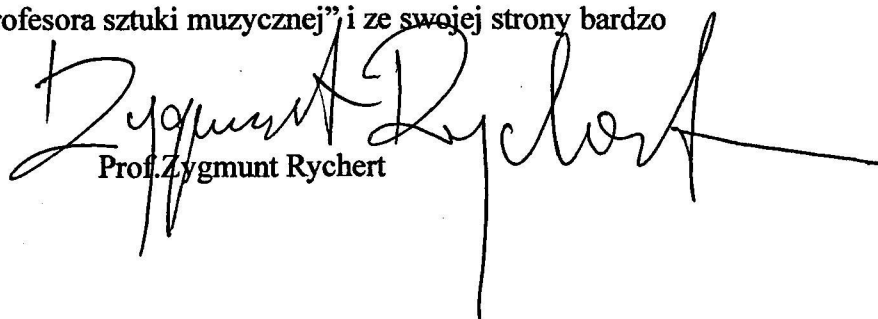 rofesora sztuki muzycznej” i ze swojej strony bardzo
Zygmunt Rychert
Prof.Zygmunt Rychert